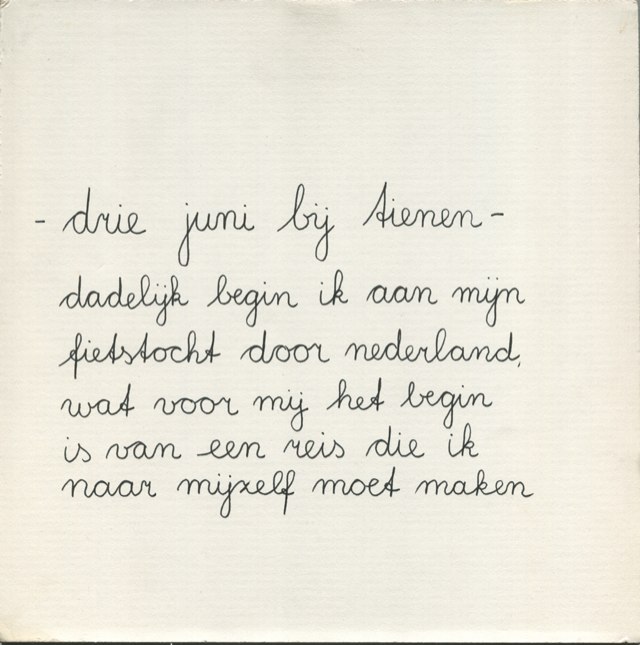 - drie juni bij tienen -
dadelijk begin ik aan mijn
fietstocht door nederland,
wat voor mij het begin
is van een reis die ik
naar mijzelf moet maken